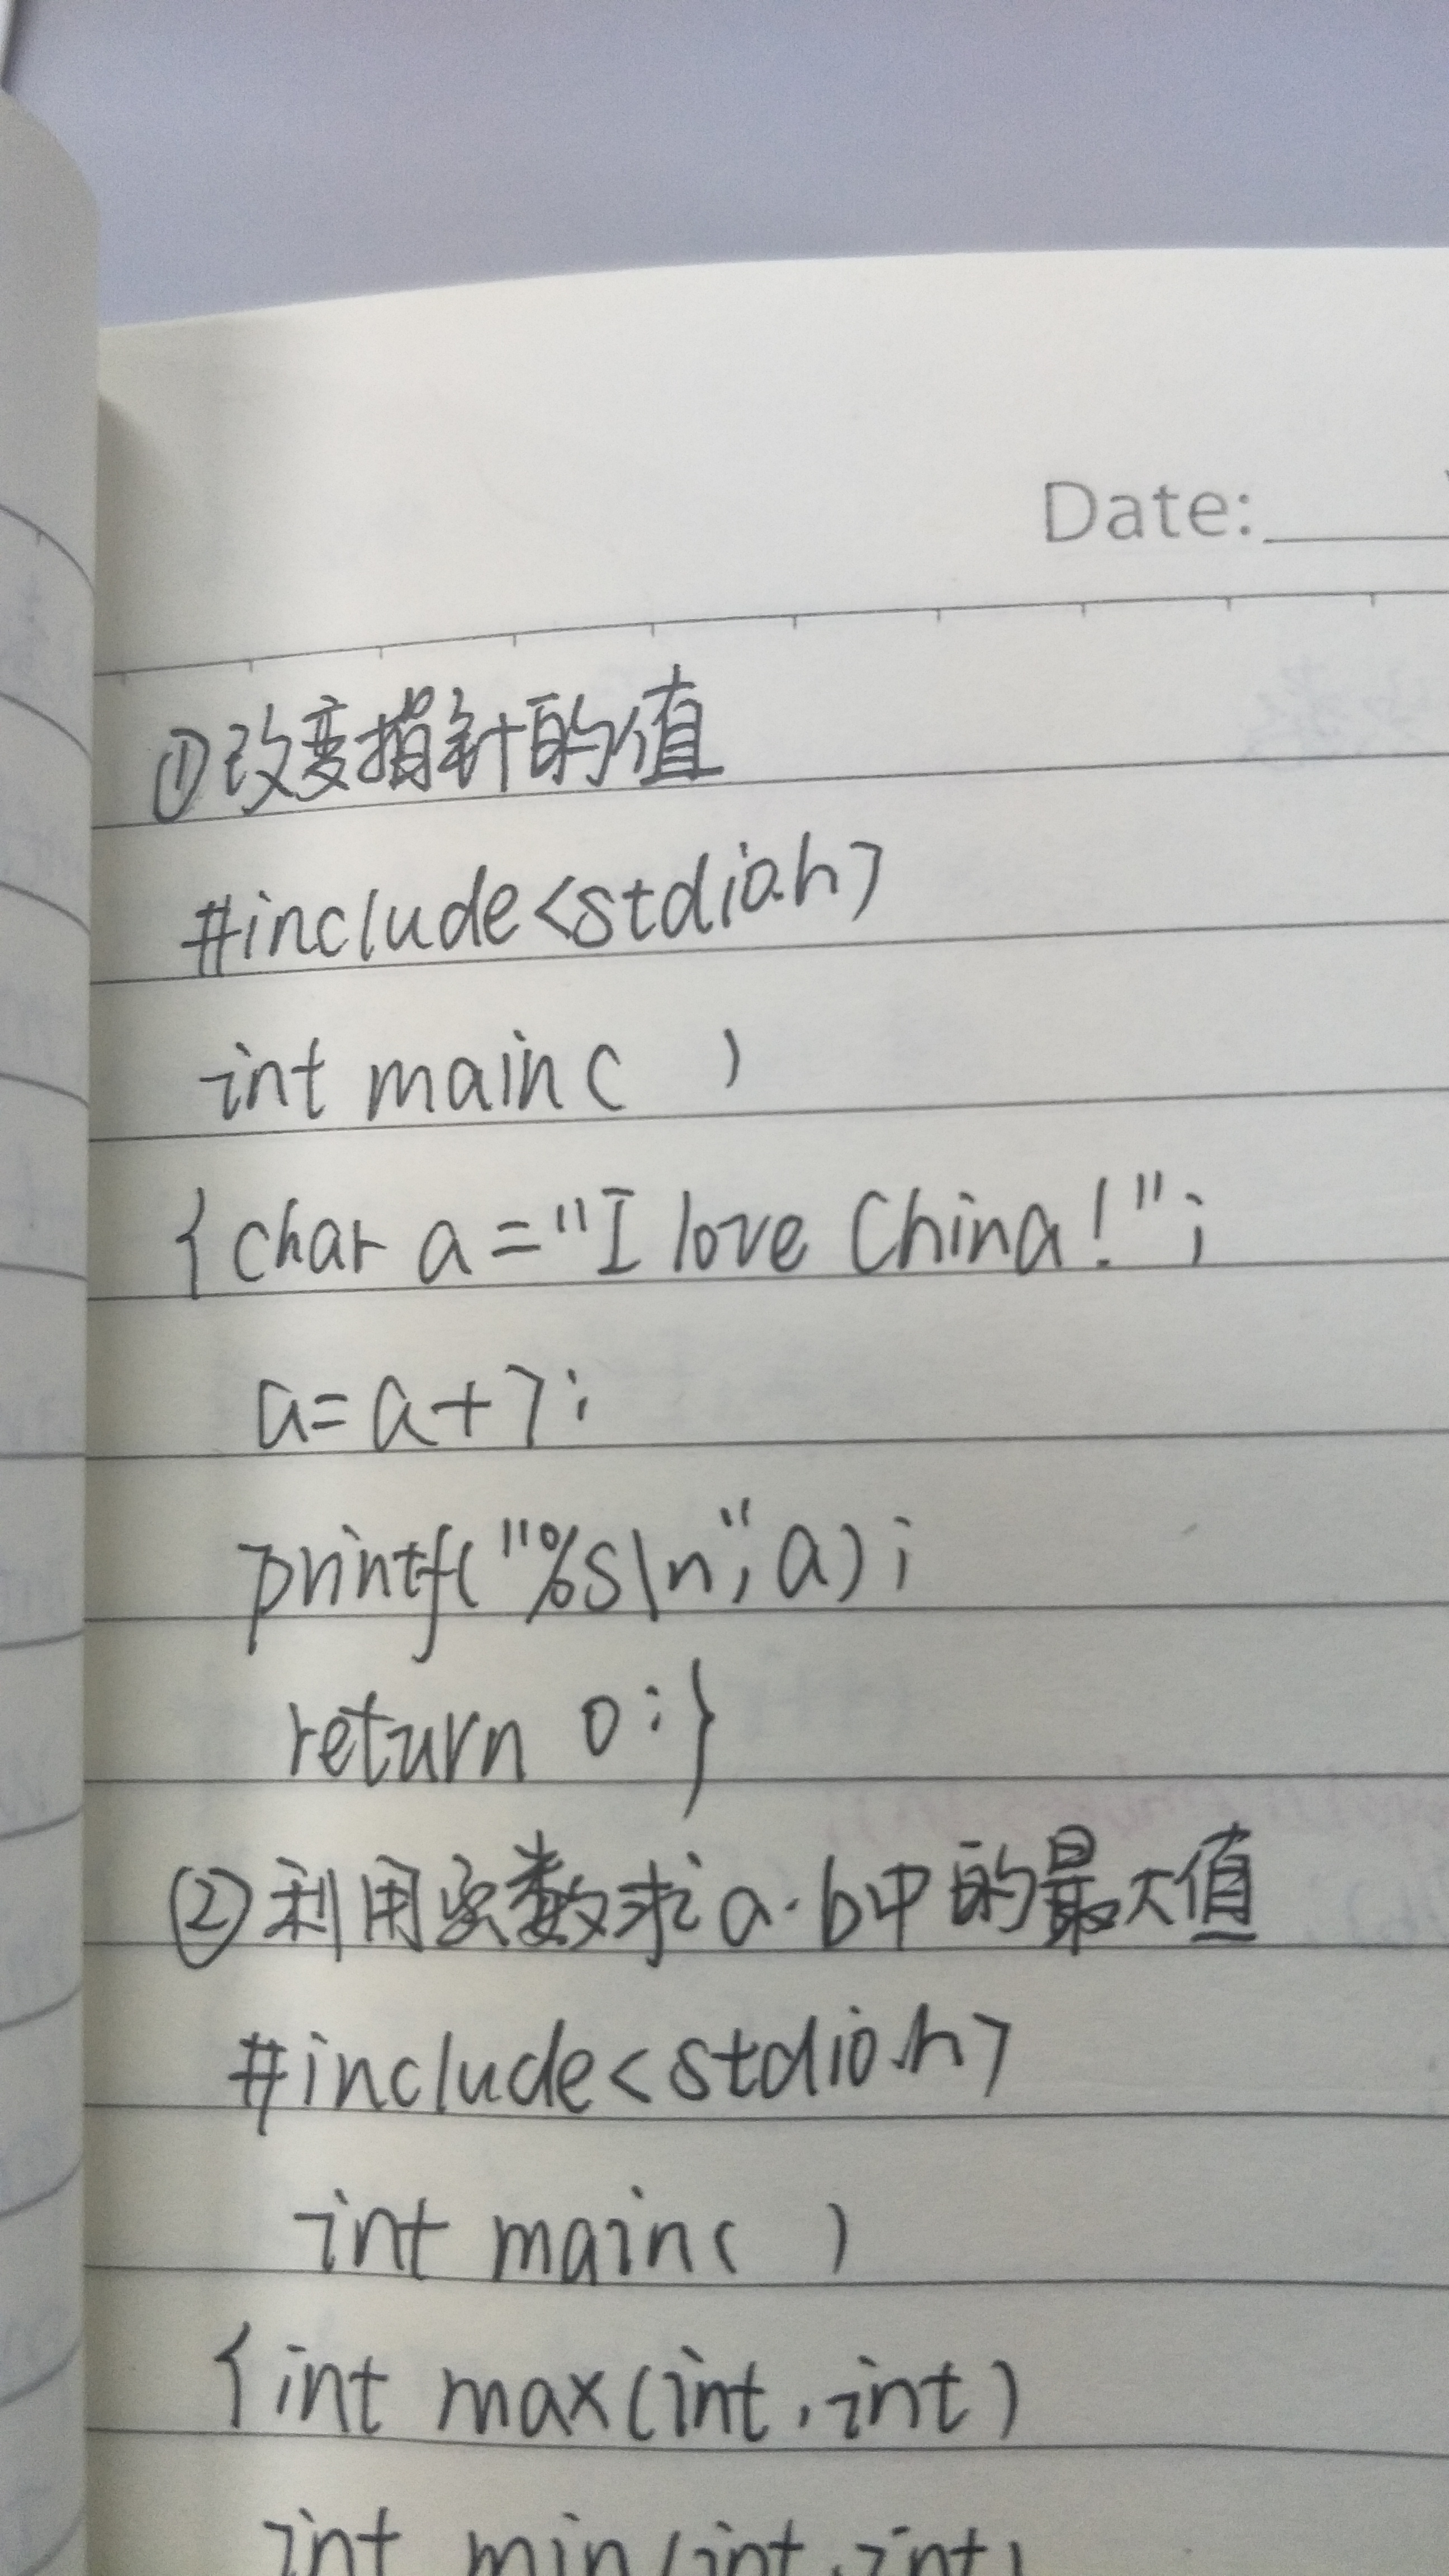 Date:
①改变指针的值
#include<stdio.h>
int main( )
{char a="I love China!";
a=a+7;
printf("%s\n",a);
return 0;}
②利用实数求a.b中的最大值
#include<stdio.h>
int main( )
{int max(int,int)
int min(int,int)